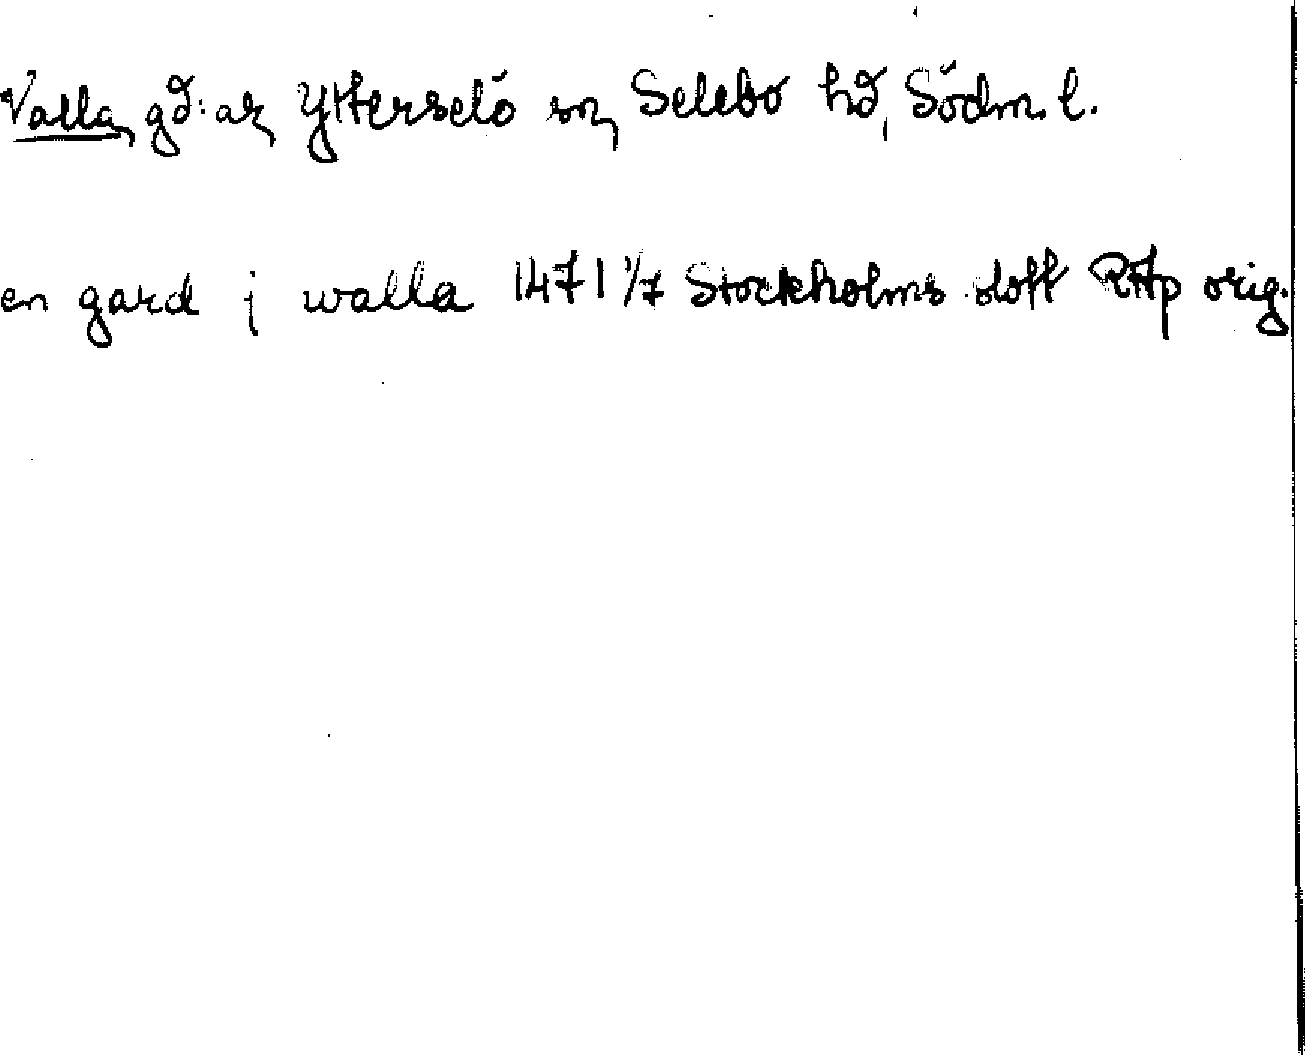 Valla, gd:ar, Ytterselö sn, Selebo hd, Södm. l.
en gard j walla 1471 1/7 Stockholms slott RAp orig.